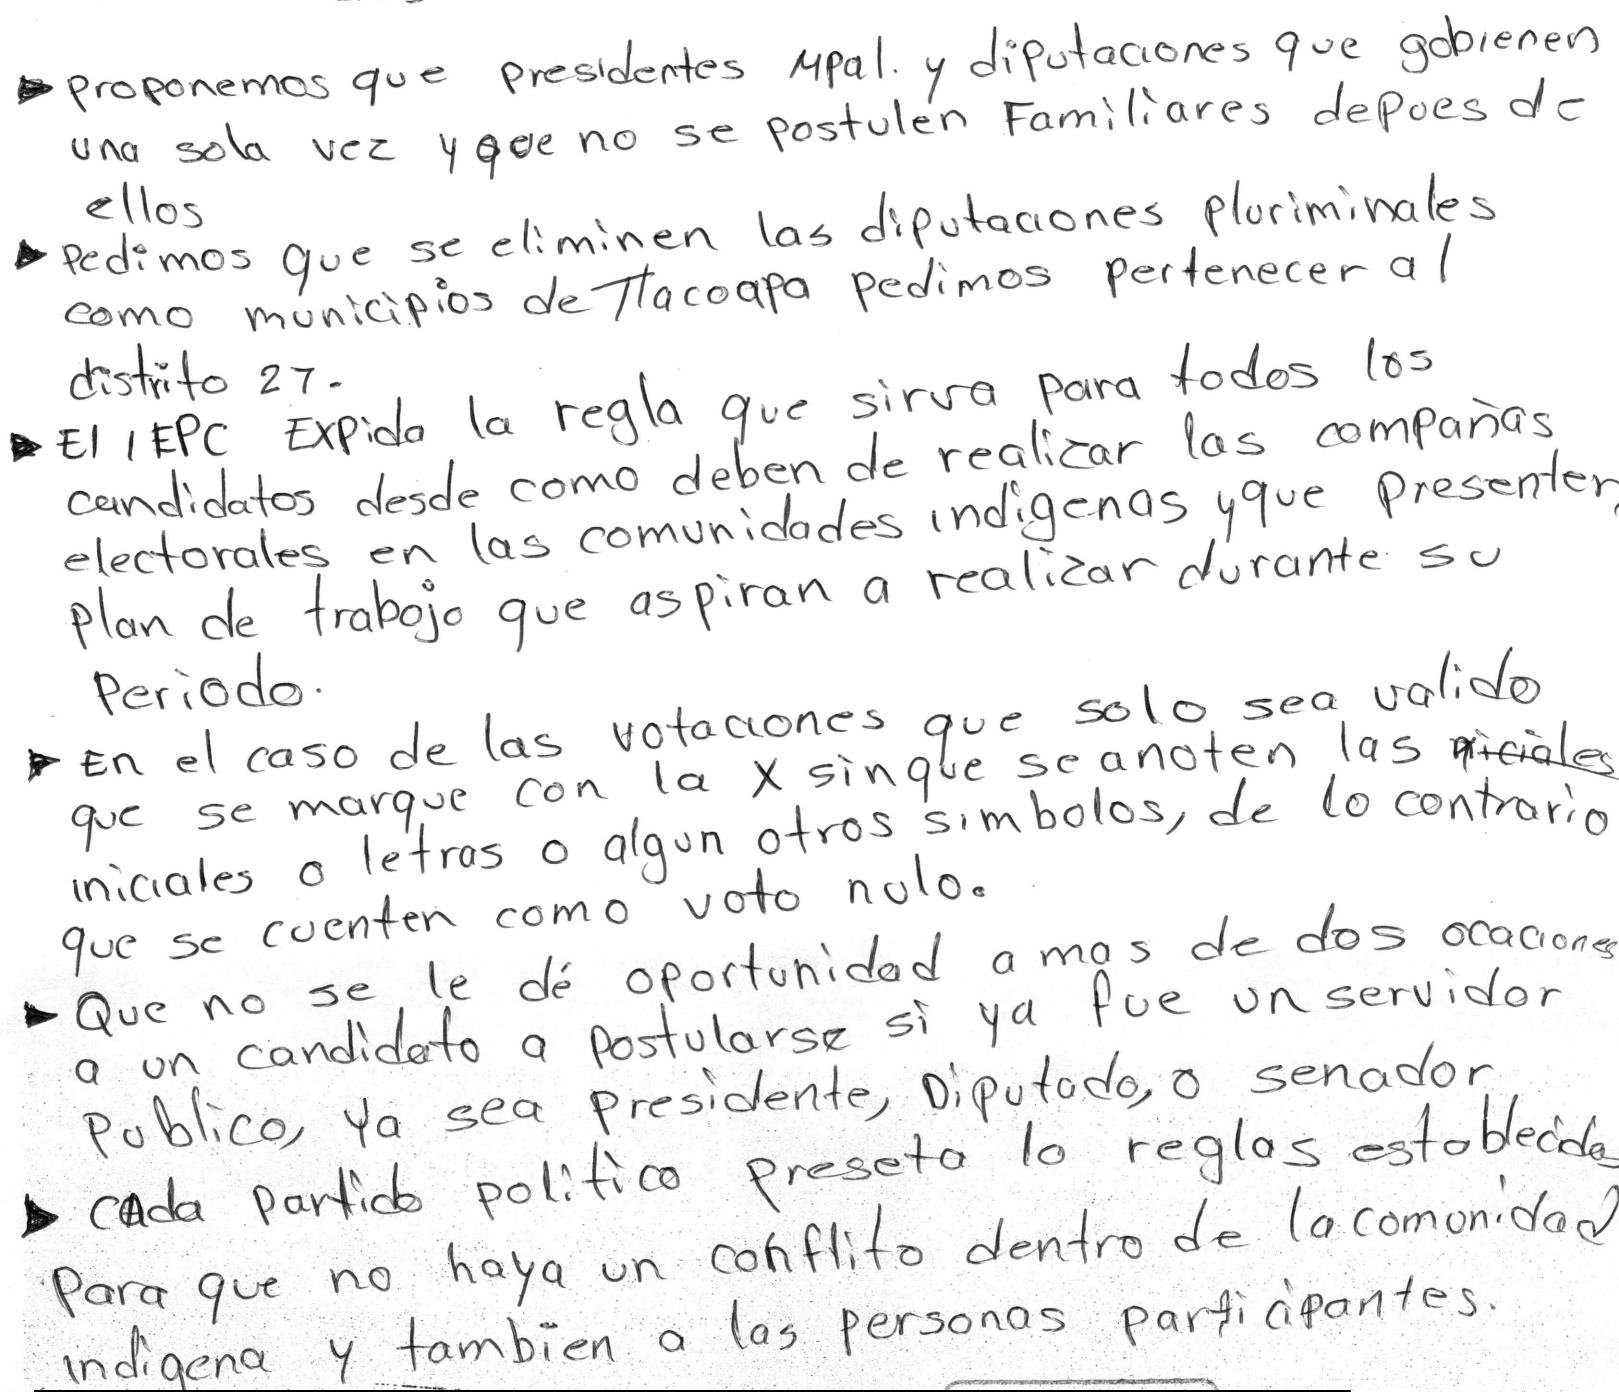 ▶ proponemos que presidentes Mpal. y diputaciones que gobienen
una sola vez y que no se postulen Familiares depues de
ellos
▶ Pedimos que se eliminen las diputaciones pluriminales
como municipios de Tlacoapa pedimos pertenecer al
distrito 27.
▶ El IEPC Expida la regla que sirva para todos los
candidatos desde como deben de realizar las compañas
electorales en las comunidades indigenas y que presenten
plan de trabajo que aspiran a realizar durante su
Periodo.
▶ En el caso de las votaciones que solo sea valido
que se marque con la X sin que se anoten las niciales
iniciales o letras o algun otros simbolos, de lo contrario
que se cuenten como voto nulo.
▶ Que no se le dé oportunidad a mas de dos ocaciones
a un candidato a postularse si ya fue un servidor
Publico, ya sea presidente, Diputado, o senador
▶ Cada partido politico preseta lo reglas establecidas
Para que no haya un conflito dentro de la comunidad
indigena y tambien a las personas participantes.